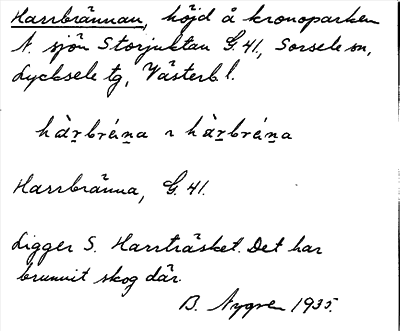 Harrbrännan, höjd å kronoparken
N. sjön Storjuktan G. 41, Sorsele sn,
Lycksele tg, Västerb. l.
hàṟbréṉa ~ hàṟbréṉa
Harrbränna, G. 41.
Ligger S. Harrträsket. Det har
brunnit skog där.
B. Nygren 1935.